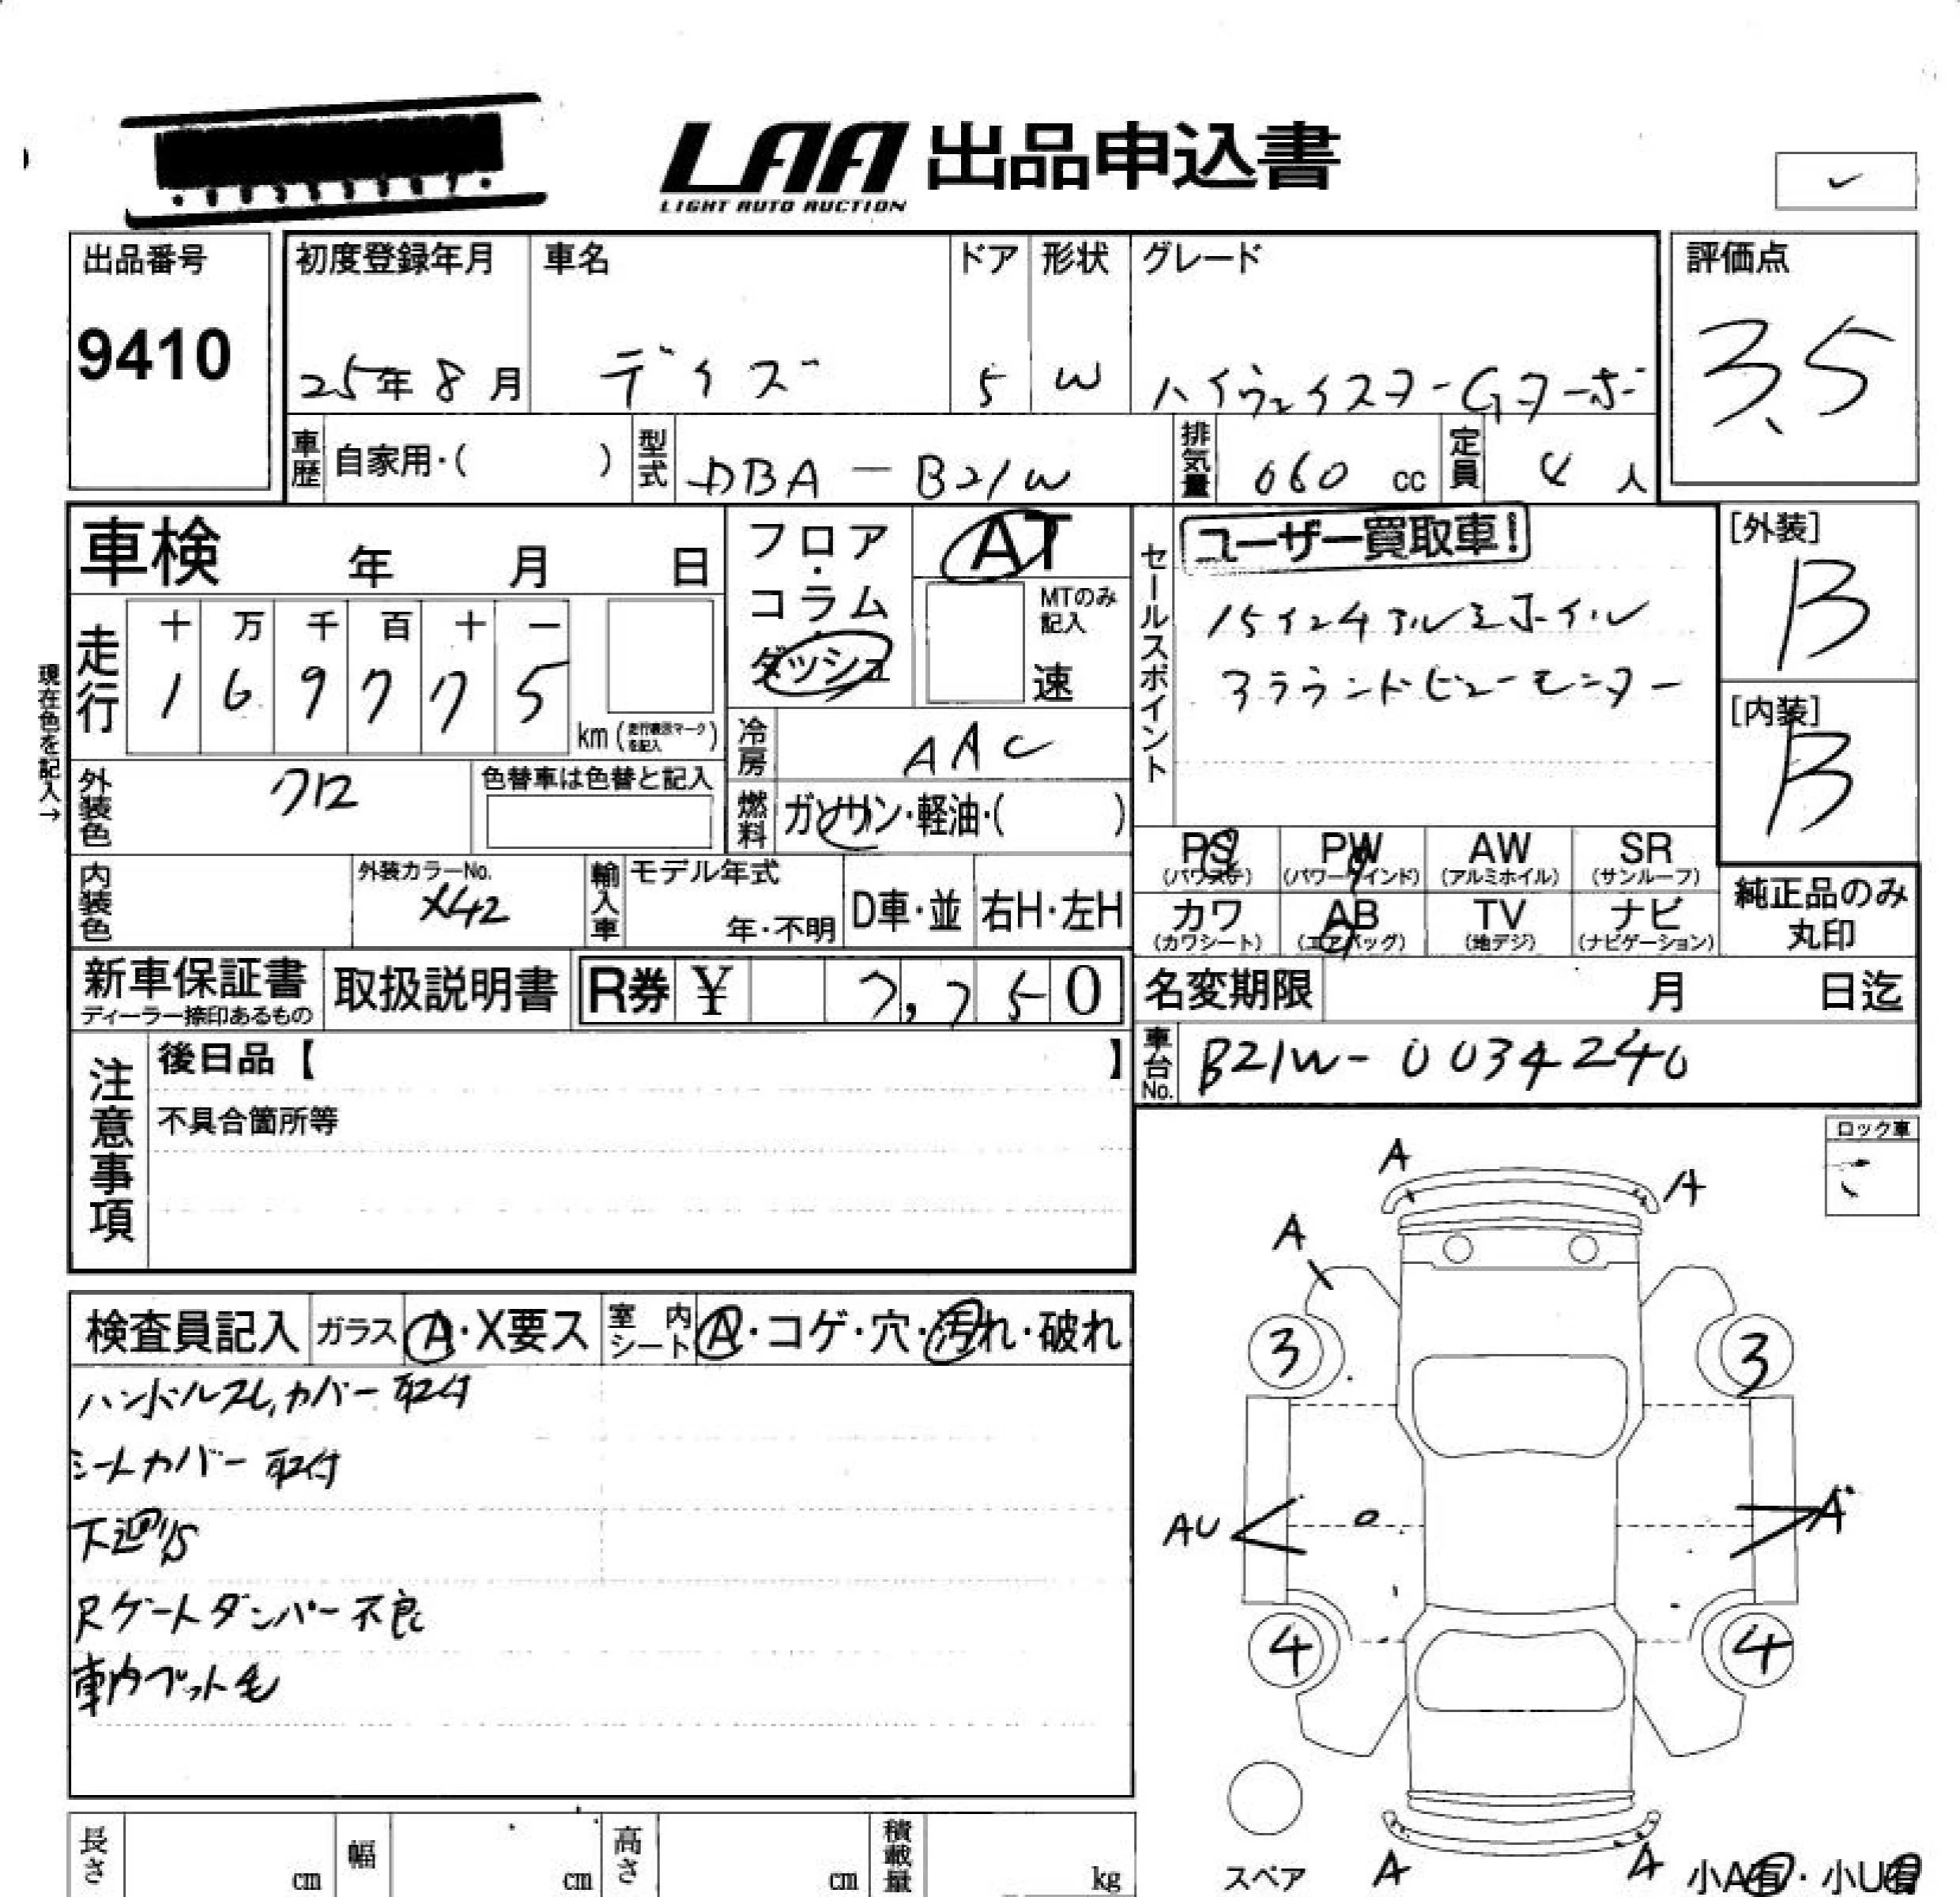 LAA 出品申込書
LIGHT AUTO AUCTION
✓
出品番号 初度登録年月 車名 ドア 形状 グレード 評価点
9410 25年8月 デイズ 5 W ハイウェイスターGターボ 3.5
車歴 自家用・( ) 型式 DBA-B21W 排気量 060 cc 定員 4 人
車検 年 月 日 フロア・コラム ダッシュ AT
MTのみ記入 速
セールスポイント ユーザー買取車!
15インチアルミホイル
アラウンドビューモニター
[外装] B
[内装] B
現在色を記入→
走行 十 万 千 百 十 一
1 6 9 7 7 5 km (走行表示マークを記入)
冷房 AAC
外装色 クロ 色替車は色替と記入
燃料 ガソリン・軽油・( )
PS (パワステ) PW (パワーウインド) AW (アルミホイル) SR (サンルーフ)
カワ (カワシート) AB (エアバッグ) TV (地デジ) ナビ (ナビゲーション)
純正品のみ丸印
内装色 外装カラーNo. X42 輸入車 モデル年式 年・不明 D車・並 右H・左H
新車保証書 ディーラー捺印あるもの 取扱説明書 R券 ¥ 7,750
名変期限 月 日迄
車台No. B21W-0034240
注意事項 後日品【 】
不具合箇所等
ロック車
検査員記入 ガラス A・X要ス 室内シート A・コゲ・穴・汚れ・破れ
ハンドルスレ,カバー取付
シートカバー取付
下廻りS
Rゲートダンパー不良
車内ペット毛
A
A
A
3 3
AU A
4 4
スペア A A 小A有・小U有
長さ cm 幅 cm 高さ cm 積載量 kg